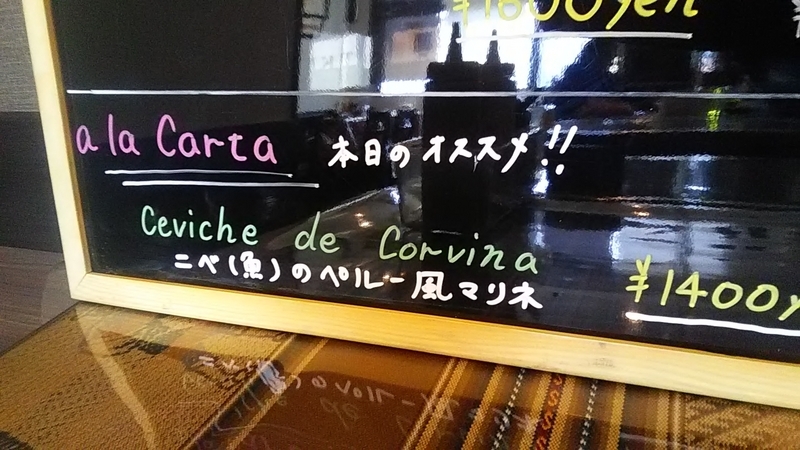 ¥1600yen
a la Carta 本日のオススメ!!
Ceviche de Corvina
ニベ(魚)のペルー風マリネ ¥1400y